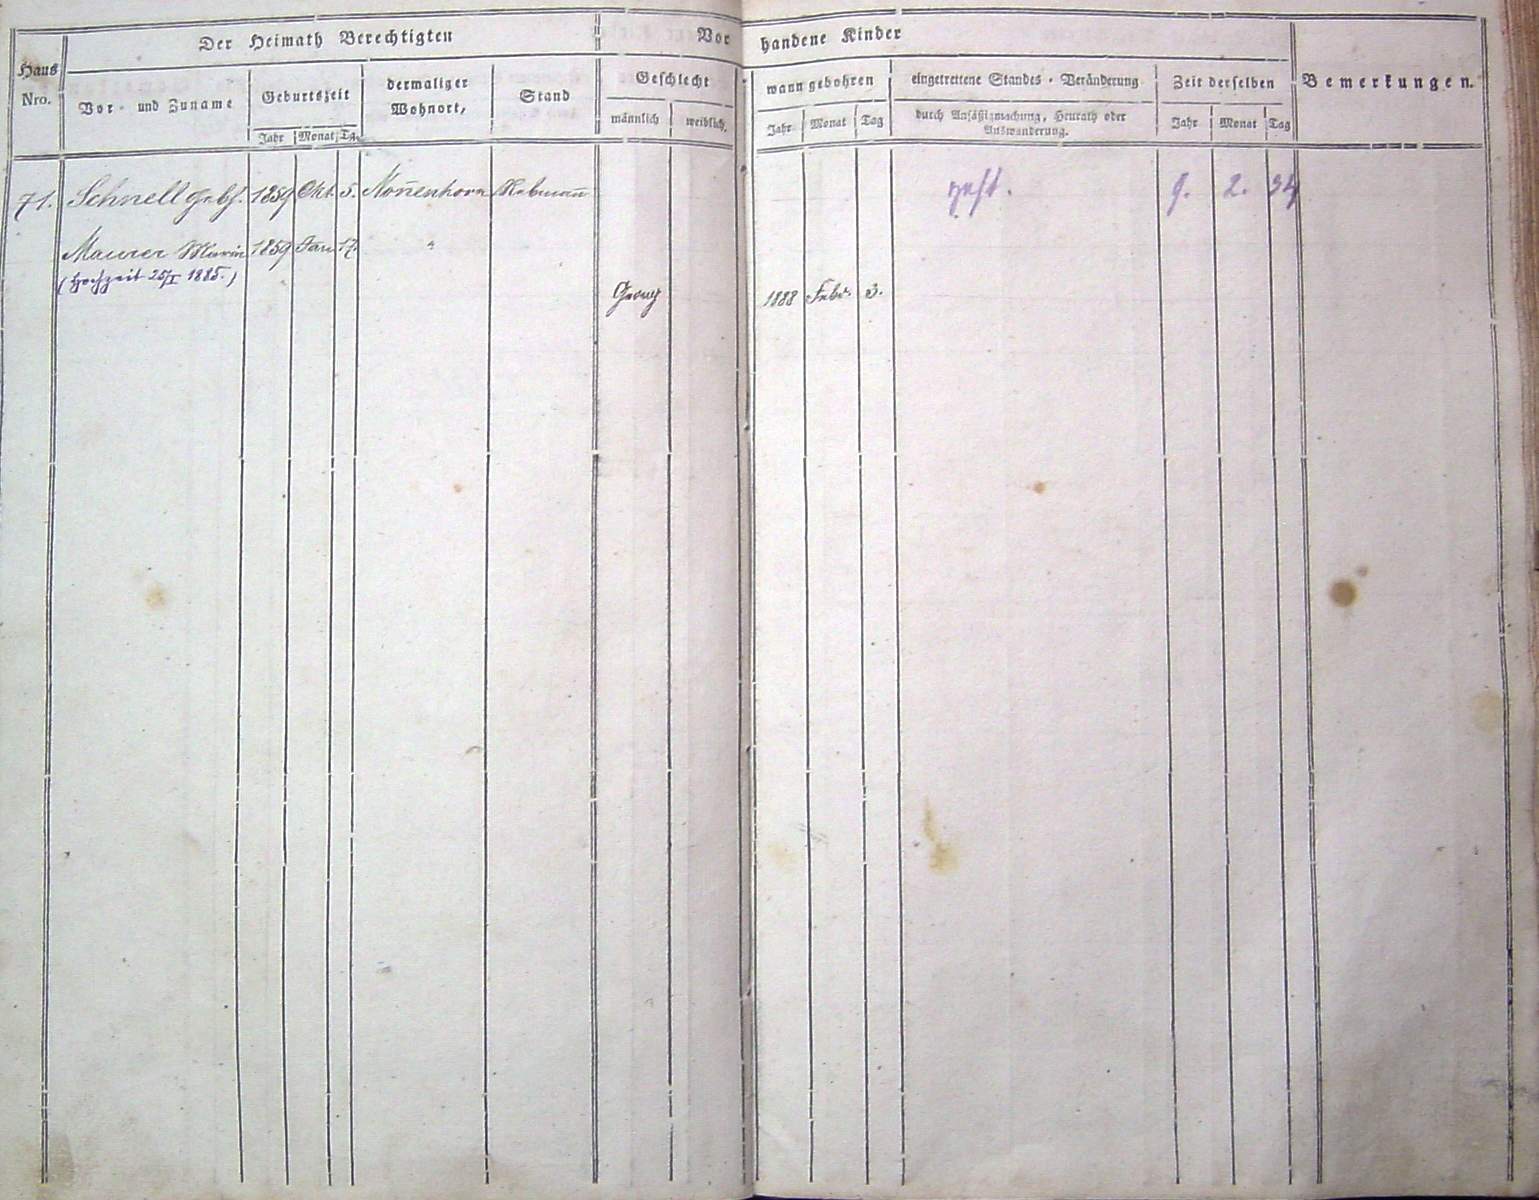 Der Heimath Berechtigten
Vorhandene Kinder
Haus Nro.
Vor- und Zuname
Geburtszeit
Jahr Monat Tg.
dermaliger Wohnort,
Stand
Geschlecht
männlich weiblich.
wann gebohren
Jahr Monat Tag
eingetrettene Standes-Veränderung
durch Ansäßigmachung, Heurath oder
Auswanderung.
Zeit derselben
Jahr Monat Tag
Bemerkungen.
71. Schnell Gebh. 1859 Okt. 5. Non̄enhorn Rebman̄ gest. 9. 2. 34
Maurer Maria 1859 Jan 17. "
(Hochzeit 25/I 1885.)
Georg 1888 Febr. 3.